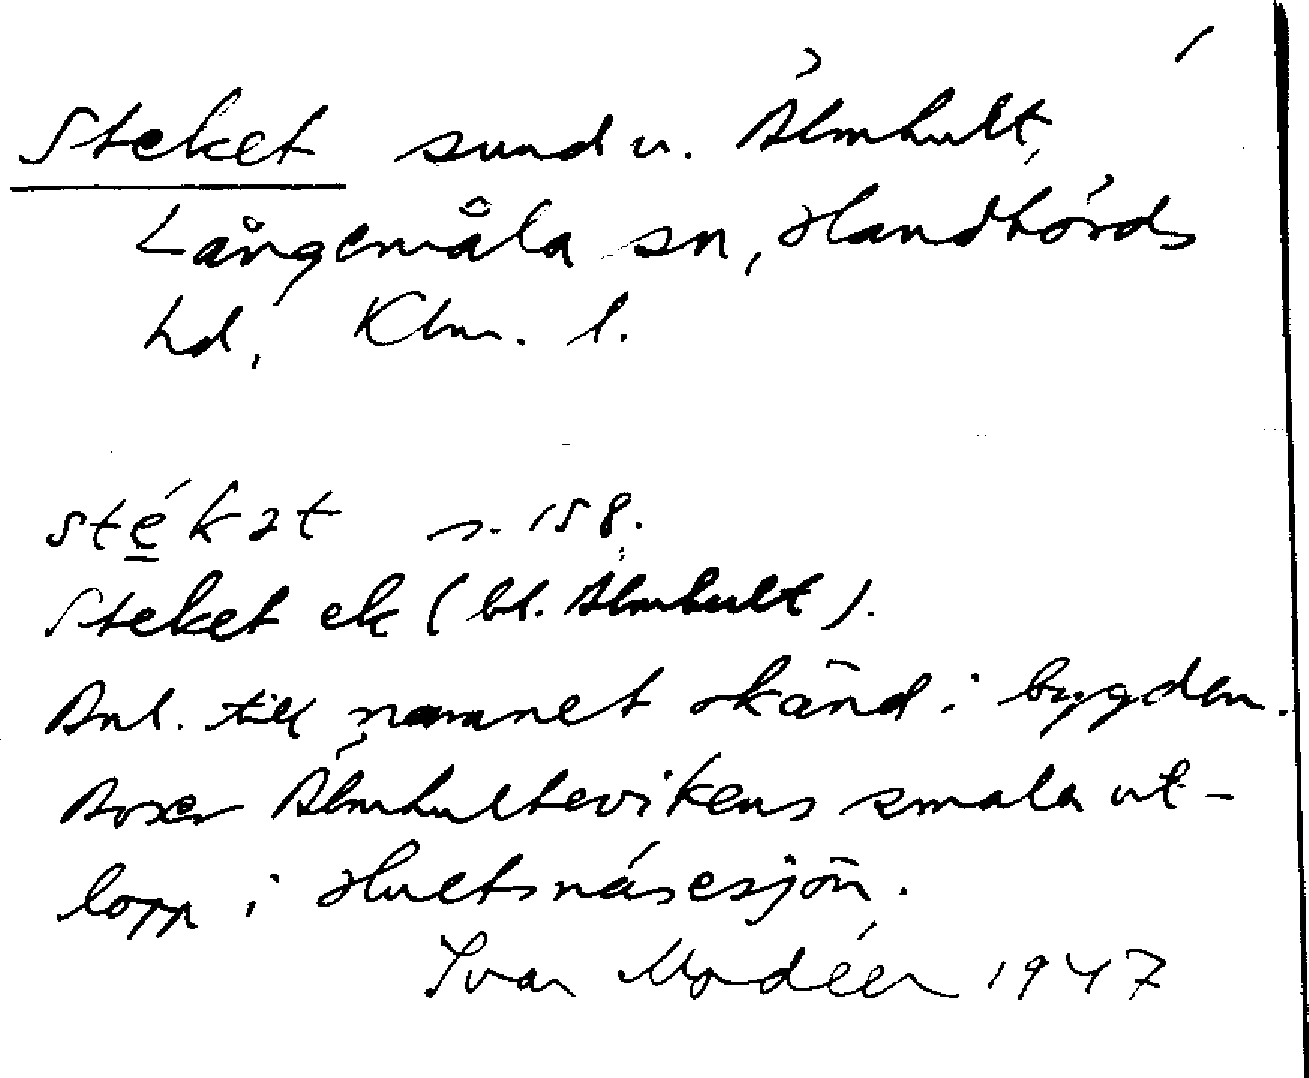 Steket sund v. Älmhult,
Långemåla sn, Handbörds
hd, Klm. l.
sté̲kət s. 158.
Steket ek (bl. Älmhult).
Anl. till namnet okänd i bygden.
Avser Älmhultevikens smala ut-
lopp i Hultsnäsesjön.
Ivar Modéer 1947